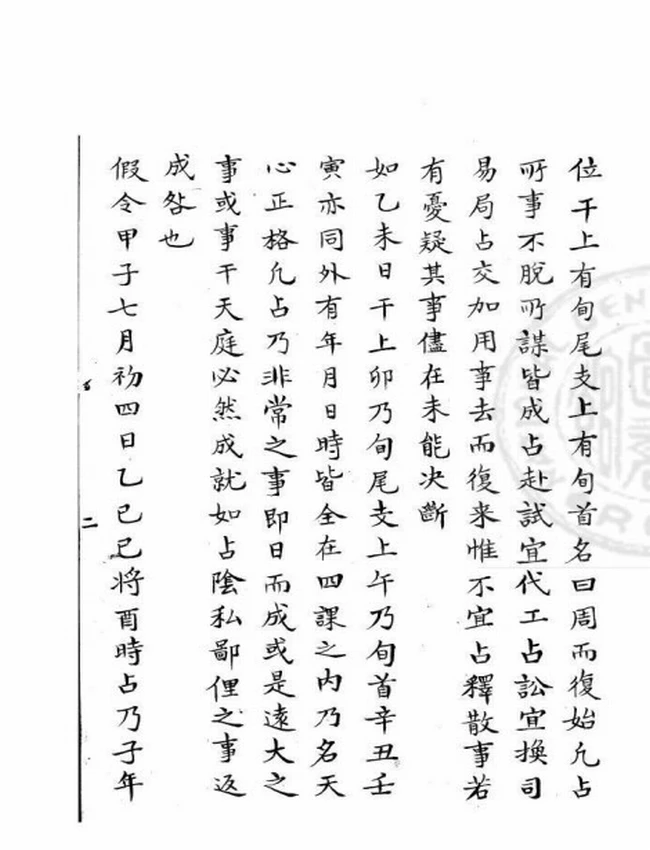 位干上有旬尾支上有旬首名曰周而復始凢占
所事不脫所謀皆成占赴試宜代工占訟宜換司
易局占交加用事去而復来惟不宜占釋散事若
有憂疑其事儘在未能决斷
如乙未日干上卯乃旬尾支上午乃旬首辛丑壬
寅亦同外有年月日時皆全在四課之内乃名天
心正格凢占乃非常之事即日而成或是遠大之
事或事干天庭必然成就如占陰私鄙俚之事返
成咎也
假令甲子七月初四日乙巳巳将酉時占乃子年
二